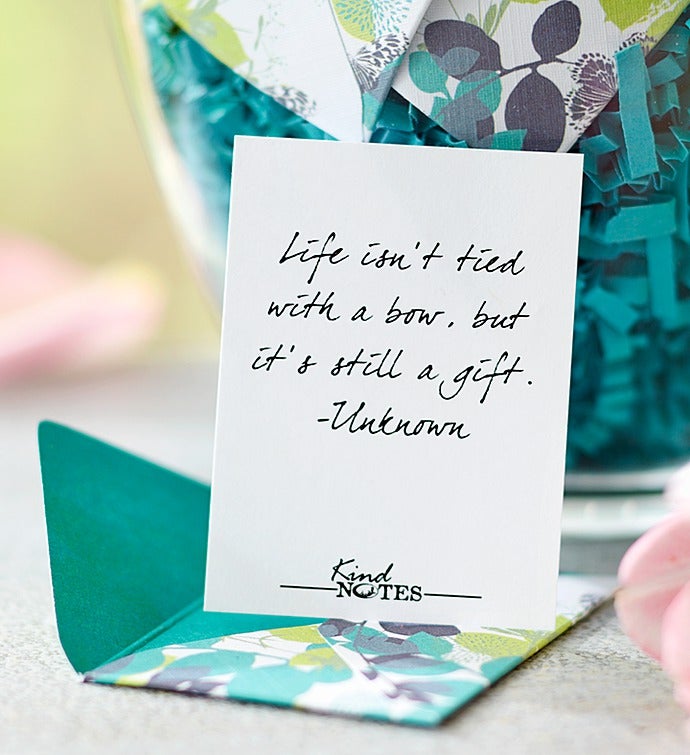 Life isn't tied
with a bow, but
it's still a gift.
-Unknown
Kind
NOTES